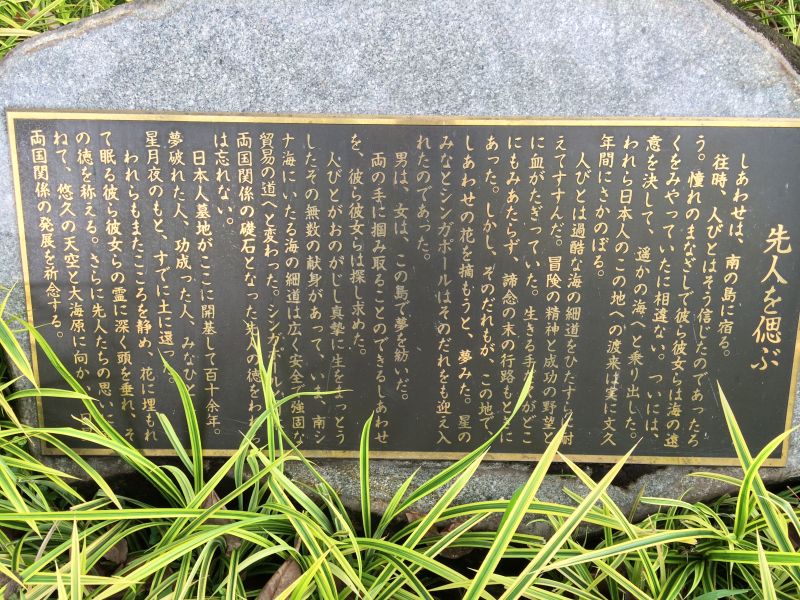 先人を偲ぶ
しあわせは、南の島に宿る。
往時、人びとはそう信じたのであったろ
う。憧れのまなざしで彼ら彼女らは海の遠
くをみやっていたに相違ない。ついには、
意を決して、遥かの海へと乗り出した。
われら日本人のこの地への渡来は実に文久
年間にさかのぼる。
人びとは過酷な海の細道をひたすら耐
えてすすんだ。冒険の精神と成功の野望と
に血がたぎっていた。生きる手だてがどこ
にもみあたらず、諦念の末の行路もときに
あった。しかし、そのだれもが、この地で
しあわせの花を摘もうと、夢みた。星の
みなとシンガポールはそのだれをも迎え入
れたのであった。
男は、女は、この島で夢を紡いだ。
両の手に掴み取ることのできるしあわせ
を、彼ら彼女らは探し求めた。
人びとがおのがじし真摯に生をまっとう
したその無数の献身があって、いま、南シ
ナ海にいたる海の細道は広く安全で強固な
貿易の道へと変わった。シンガポール
両国関係の礎石となった先人の徳をわれ
は忘れない。
日本人墓地がここに開基して百十余年。
夢破れた人、功成った人、みなひと
星月夜のもと、すでに土に還った。
われらもまたこころを静め、花に埋もれ
て眠る彼ら彼女らの霊に深く頭を垂れ、そ
の徳を称える。さらに先人たちの思い
ねて、悠久の天空と大海原に向か
両国関係の発展を祈念する。